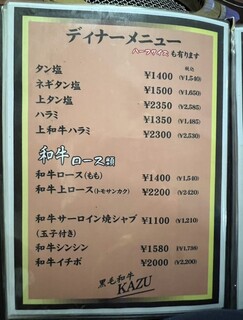 ディナーメニュー
ハーフサイズも有ります
税込
タン塩 ¥1400 (¥1,540)
ネギタン塩 ¥1500 (¥1,650)
上タン塩 ¥2350 (¥2,585)
ハラミ ¥1350 (¥1,485)
上和牛ハラミ ¥2300 (¥2,530)
和牛ロース類
和牛ロース(もも) ¥1400 (¥1,540)
和牛上ロース(トモサンカク) ¥2200 (¥2420)
和牛サーロイン焼シャブ ¥1100 (¥1,210)
(玉子付き)
和牛シンシン ¥1580 (¥1,738)
和牛イチボ ¥2000 (¥2,200)
黒毛和牛
KAZU